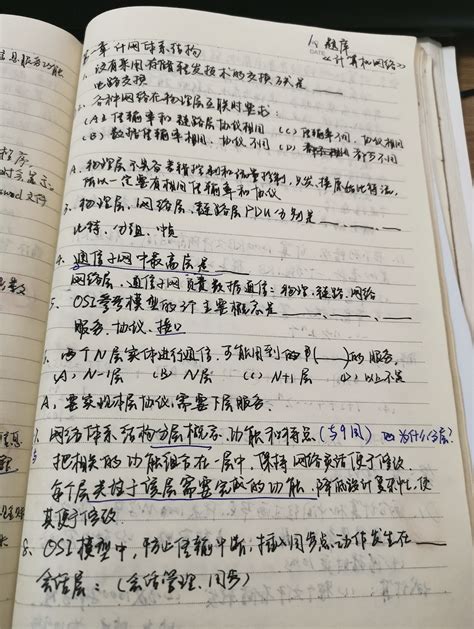 题库
《计算机网络》
第一章 计网体系结构
1. 没有采用存储转发技术的交换方式是
电路交换
2. 各种网络在物理层互联时要求:
(A) 传输率和链路层协议相同 (C) 传输率不同, 协议相同
(B) 数据传输率相同, 协议不同 (D) 都不同
A. 物理层不具备差错控制和流量控制, 只发
所以一定要有相同传输率和协议
3. 物理层、网络层、链路层PDU分别是
比特、分组、帧
4. 通信子网中最高层是
网络层, 通信子网负责数据通信: 物理、链路、网络
5. OSI参考模型的3个主要概念是
服务、协议、接口
6. 两个N层实体进行通信, 可能用到的是( )的服务.
(A) N-1层 (B) N层 (C) N+1层 (D) 以上不是
A. 要实现本层协议, 需要下层服务.
7. 网络体系结构分层概念、功能和特点 (与9同) 为什么分层?
把相关的功能组合在一层中, 保持网络灵活便于修改
每个层类性于该层需要完成的功能, 降低设计复杂性, 使
其便于修改
8. OSI模型中, 防止传输中断, 插入同步点动作发生在
会话层: (会话管理、同步)